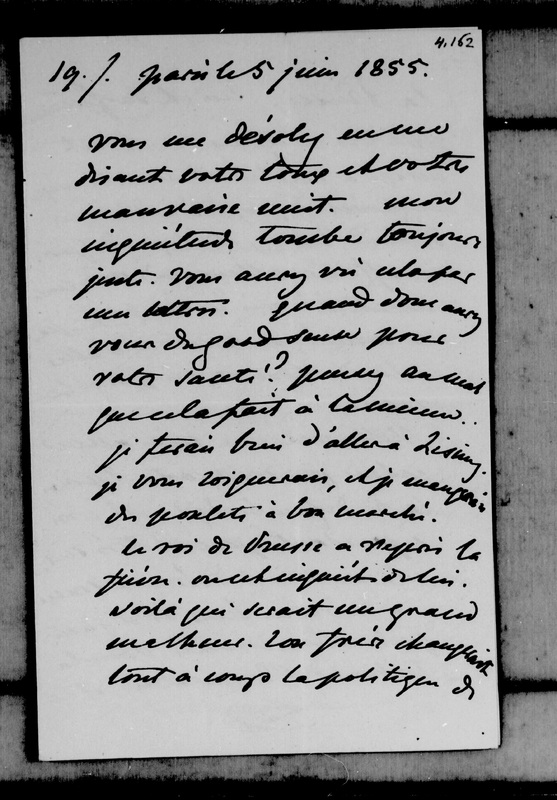 4.162
19. /. paris le 5 juin 1855.
vous me désolez en me
disant votre toux et votre
mauvaise nuit. mon
inquiétude tombe toujours
juste. vous aurez vu cela par
mes lettres. quand donc aurez
vous du good sense pour
votre santé? pensez au mal
que cela fait à la mienne..
je ferais bien d'aller à Lisieux.
je vous soignerais, et je mangerais
des poulets à bon marché.
le roi de Prusse a repris la
fièvre. on est inquiet de lui.
voilà qui serait un grand
malheur. son frère changerait
tout à coup la politique de